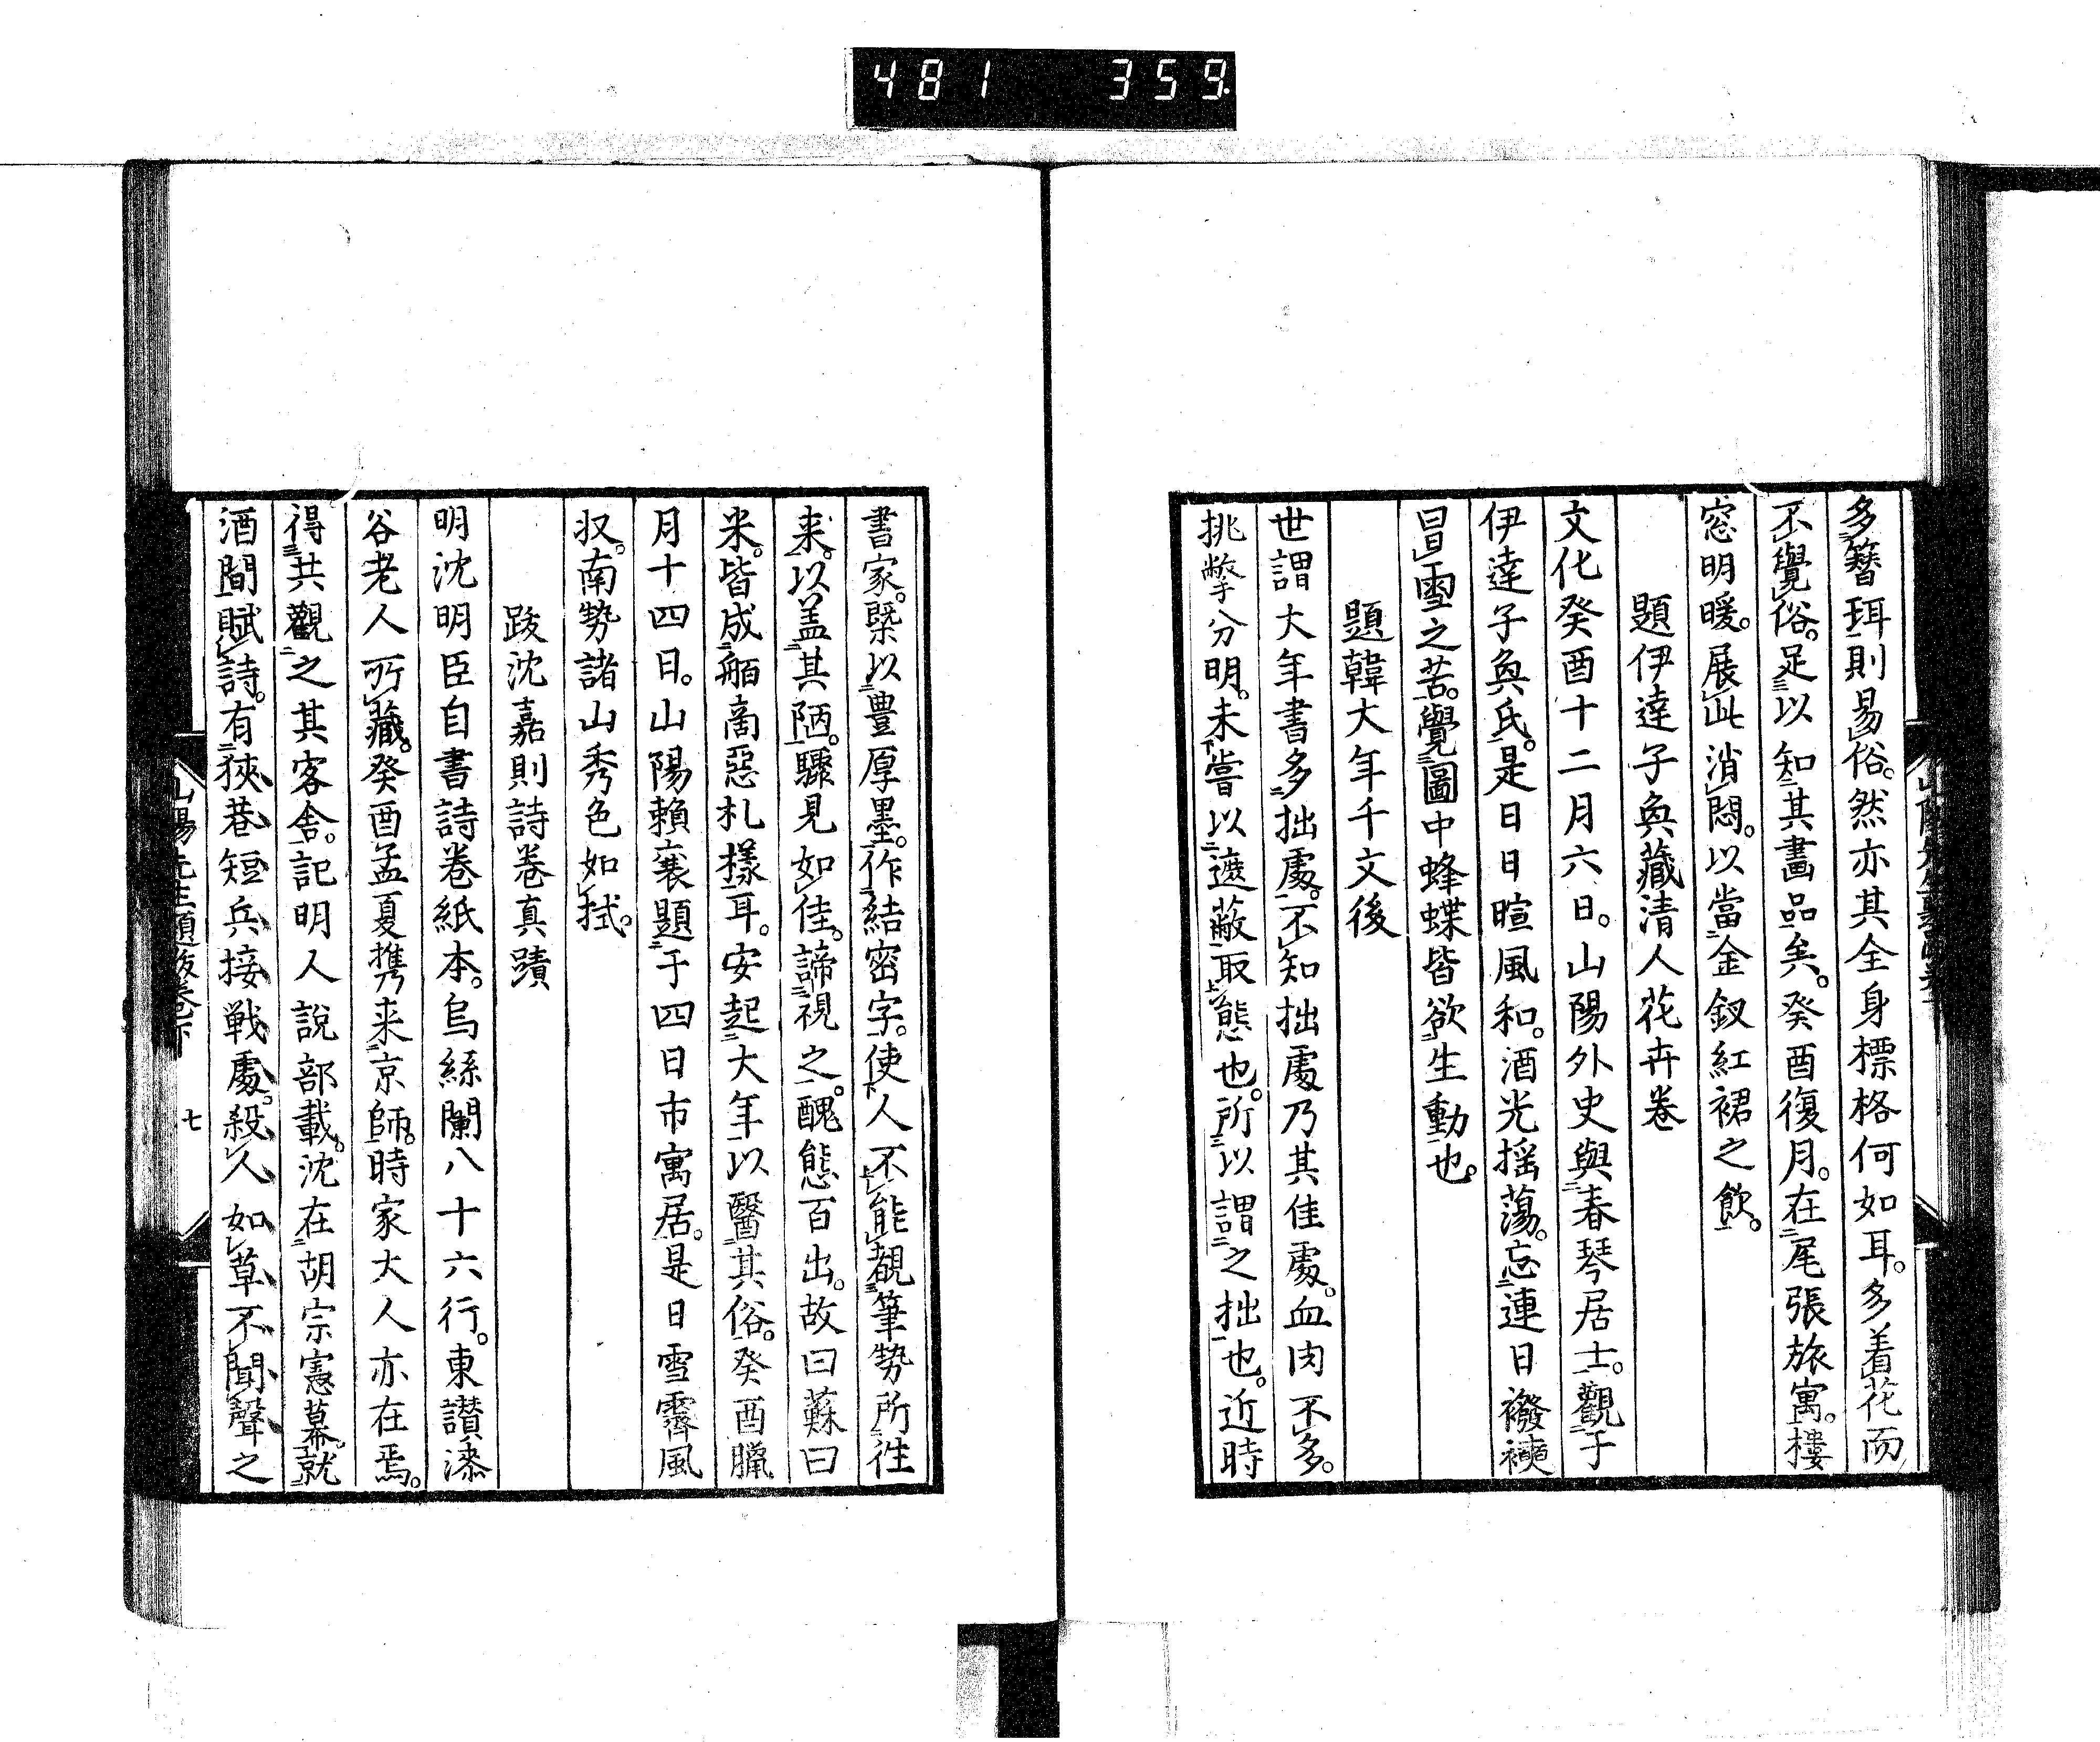 481 359
多簪珥則易俗。然亦其全身標格何如耳。多着花而
不覺俗。足以知其畫品矣。癸酉復月。在尾張旅寓。樓
窓明暖。展此消悶。以當金釵紅裙之飲。
題伊達子奐藏清人花卉卷
文化癸酉十二月六日。山陽外史與春琴居士。觀于
伊達子奐氏。是日日暄風和。酒光揺蕩。忘連日襏襫
冒雪之苦。覺圖中蜂蝶皆欲生動也。
題韓大年千文後
世謂大年書多拙處。不知拙處乃其佳處。血肉不多。
挑撆分明。未嘗以遮蔽取態也。所以謂之拙也。近時
書家。槩以豊厚墨。作結密字。使人不能覩筆勢所徃
来。以盖其陋。驟見如佳。諦視之。醜態百出。故曰蘓曰
米。皆成舶啇惡札樣耳。安起大年以醫其俗。癸酉臘
月十四日。山陽賴襄題于四日市寓居。是日雪霽風
収。南勢諸山秀色如拭。
跋沈嘉則詩卷真蹟
明沈明臣自書詩卷紙本。烏絲闌八十六行。東讃漆
谷老人所藏。癸酉孟夏携来京師。時家大人亦在焉。
得共觀之其客舍。記明人說部載。沈在胡宗憲幕。就
酒間賦詩。有狹巷短兵接戦處。殺人如草不聞聲之
山陽先生題跋卷下 七